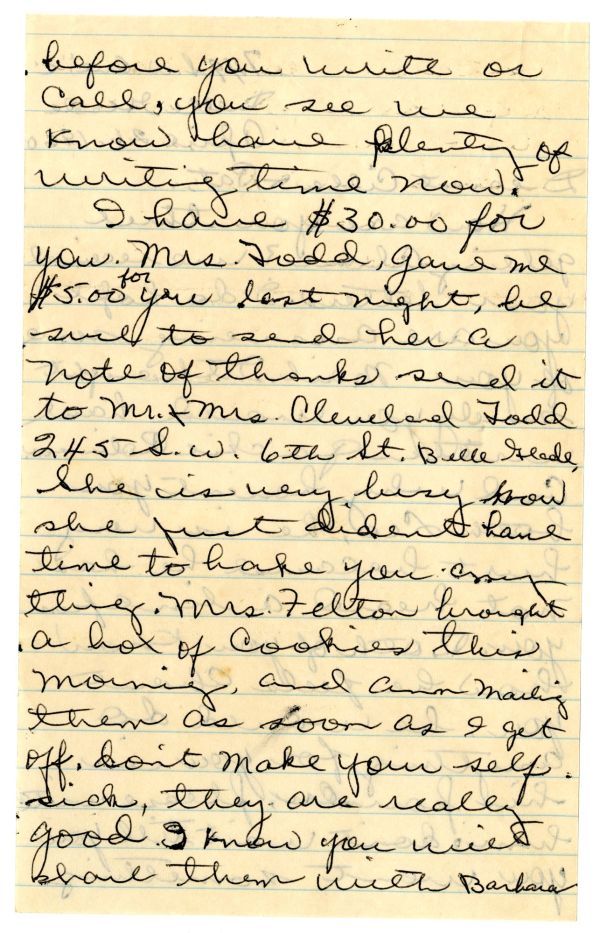 before you write or
call, you see we
know have plenty of
writing time now.
I have $30.00 for
you. Mrs. Todd, gave me
$5.00 for you last night, be
sure to send her a
note of thanks send it
to Mr. & Mrs. Cleveland Todd
245 S.W. 6th St. Belle Glade,
She is very busy know
she just dident have
time to bake you any
thing. Mrs. Felton brought
a box of Cookies this
morning, and am mailing
them as soon as I get
off. don't make your self
sick, they are really
good. I know you will
share them with Barbara